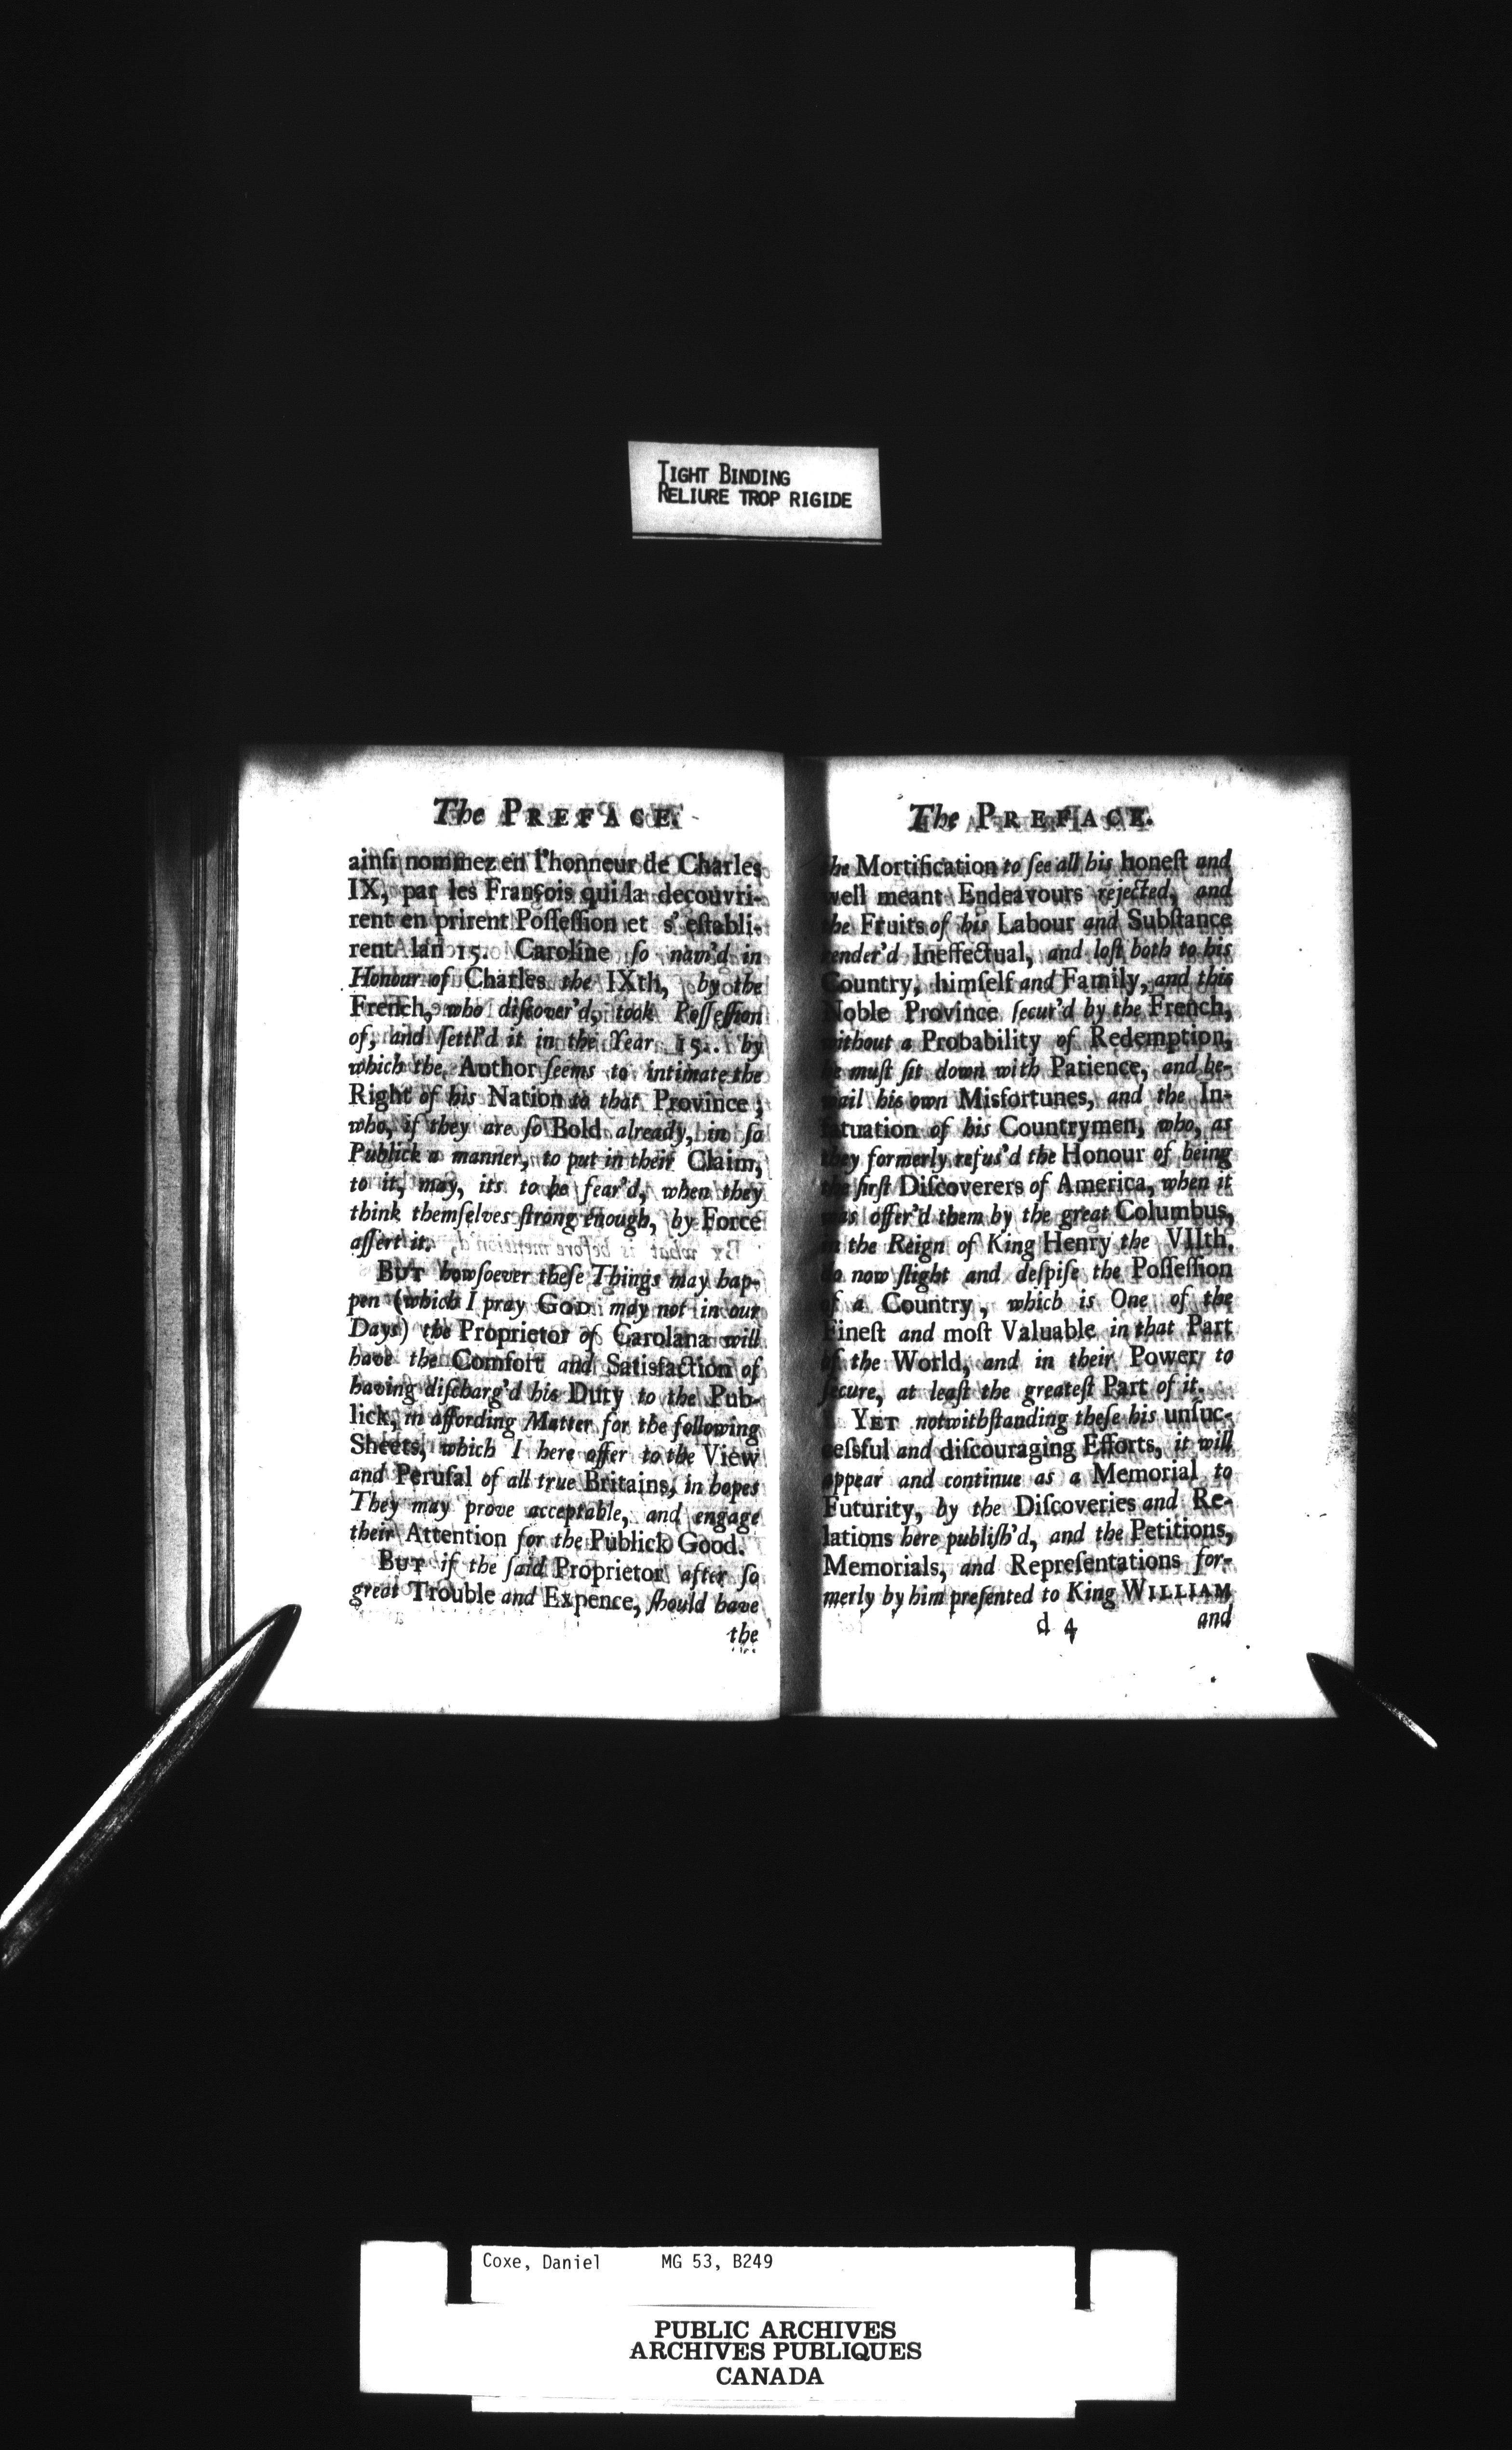 TIGHT BINDING
RELIURE TROP RIGIDE
The PREFACE.
ainſi nommez en l'honneur de Charles
IX, par les François qui la decouvri-
rent en prirent Poſſeſſion et s'eſtabli-
rent lan 15. Caroline ſo nam'd in
Honour of Charles the IXth, by the
French, who diſcover'd, took Poſſeſſion
of, and ſettl'd it in the Year 15.. by
which the Author ſeems to intimate the
Right of his Nation to that Province;
who, if they are ſo Bold already, in ſo
Publick a manner, to put in their Claim,
to it, may, its to be fear'd, when they
think themſelves ſtrong enough, by Force
aſſert it.
BUT howſoever theſe Things may hap-
pen (which I pray GOD may not in our
Days) the Proprietor of Carolana will
have the Comfort and Satisfaction of
having diſcharg'd his Duty to the Pub-
lick, in affording Matter for the following
Sheets, which I here offer to the View
and Peruſal of all true Britains, in hopes
They may prove acceptable, and engage
their Attention for the Publick Good.
BUT if the ſaid Proprietor after ſo
great Trouble and Expence, ſhould have
the
The PREFACE.
the Mortification to ſee all his honeſt and
well meant Endeavours rejected, and
the Fruits of his Labour and Subſtance
render'd Ineffectual, and loſt both to his
Country, himſelf and Family, and this
Noble Province ſecur'd by the French,
without a Probability of Redemption,
he muſt ſit down with Patience, and be-
wail his own Misfortunes, and the In-
fatuation of his Countrymen, who, as
they formerly refus'd the Honour of being
the firſt Diſcoverers of America, when it
was offer'd them by the great Columbus,
in the Reign of King Henry the VIIth,
do now ſlight and deſpiſe the Poſſeſſion
of a Country, which is One of the
Fineſt and moſt Valuable in that Part
of the World, and in their Power to
ſecure, at leaſt the greateſt Part of it.
YET notwithſtanding theſe his unſuc-
ceſsful and diſcouraging Efforts, it will
appear and continue as a Memorial to
Futurity, by the Diſcoveries and Re-
lations here publiſh'd, and the Petitions,
Memorials, and Repreſentations for-
merly by him preſented to King WILLIAM
d 4 and
Coxe, Daniel MG 53, B249
PUBLIC ARCHIVES
ARCHIVES PUBLIQUES
CANADA